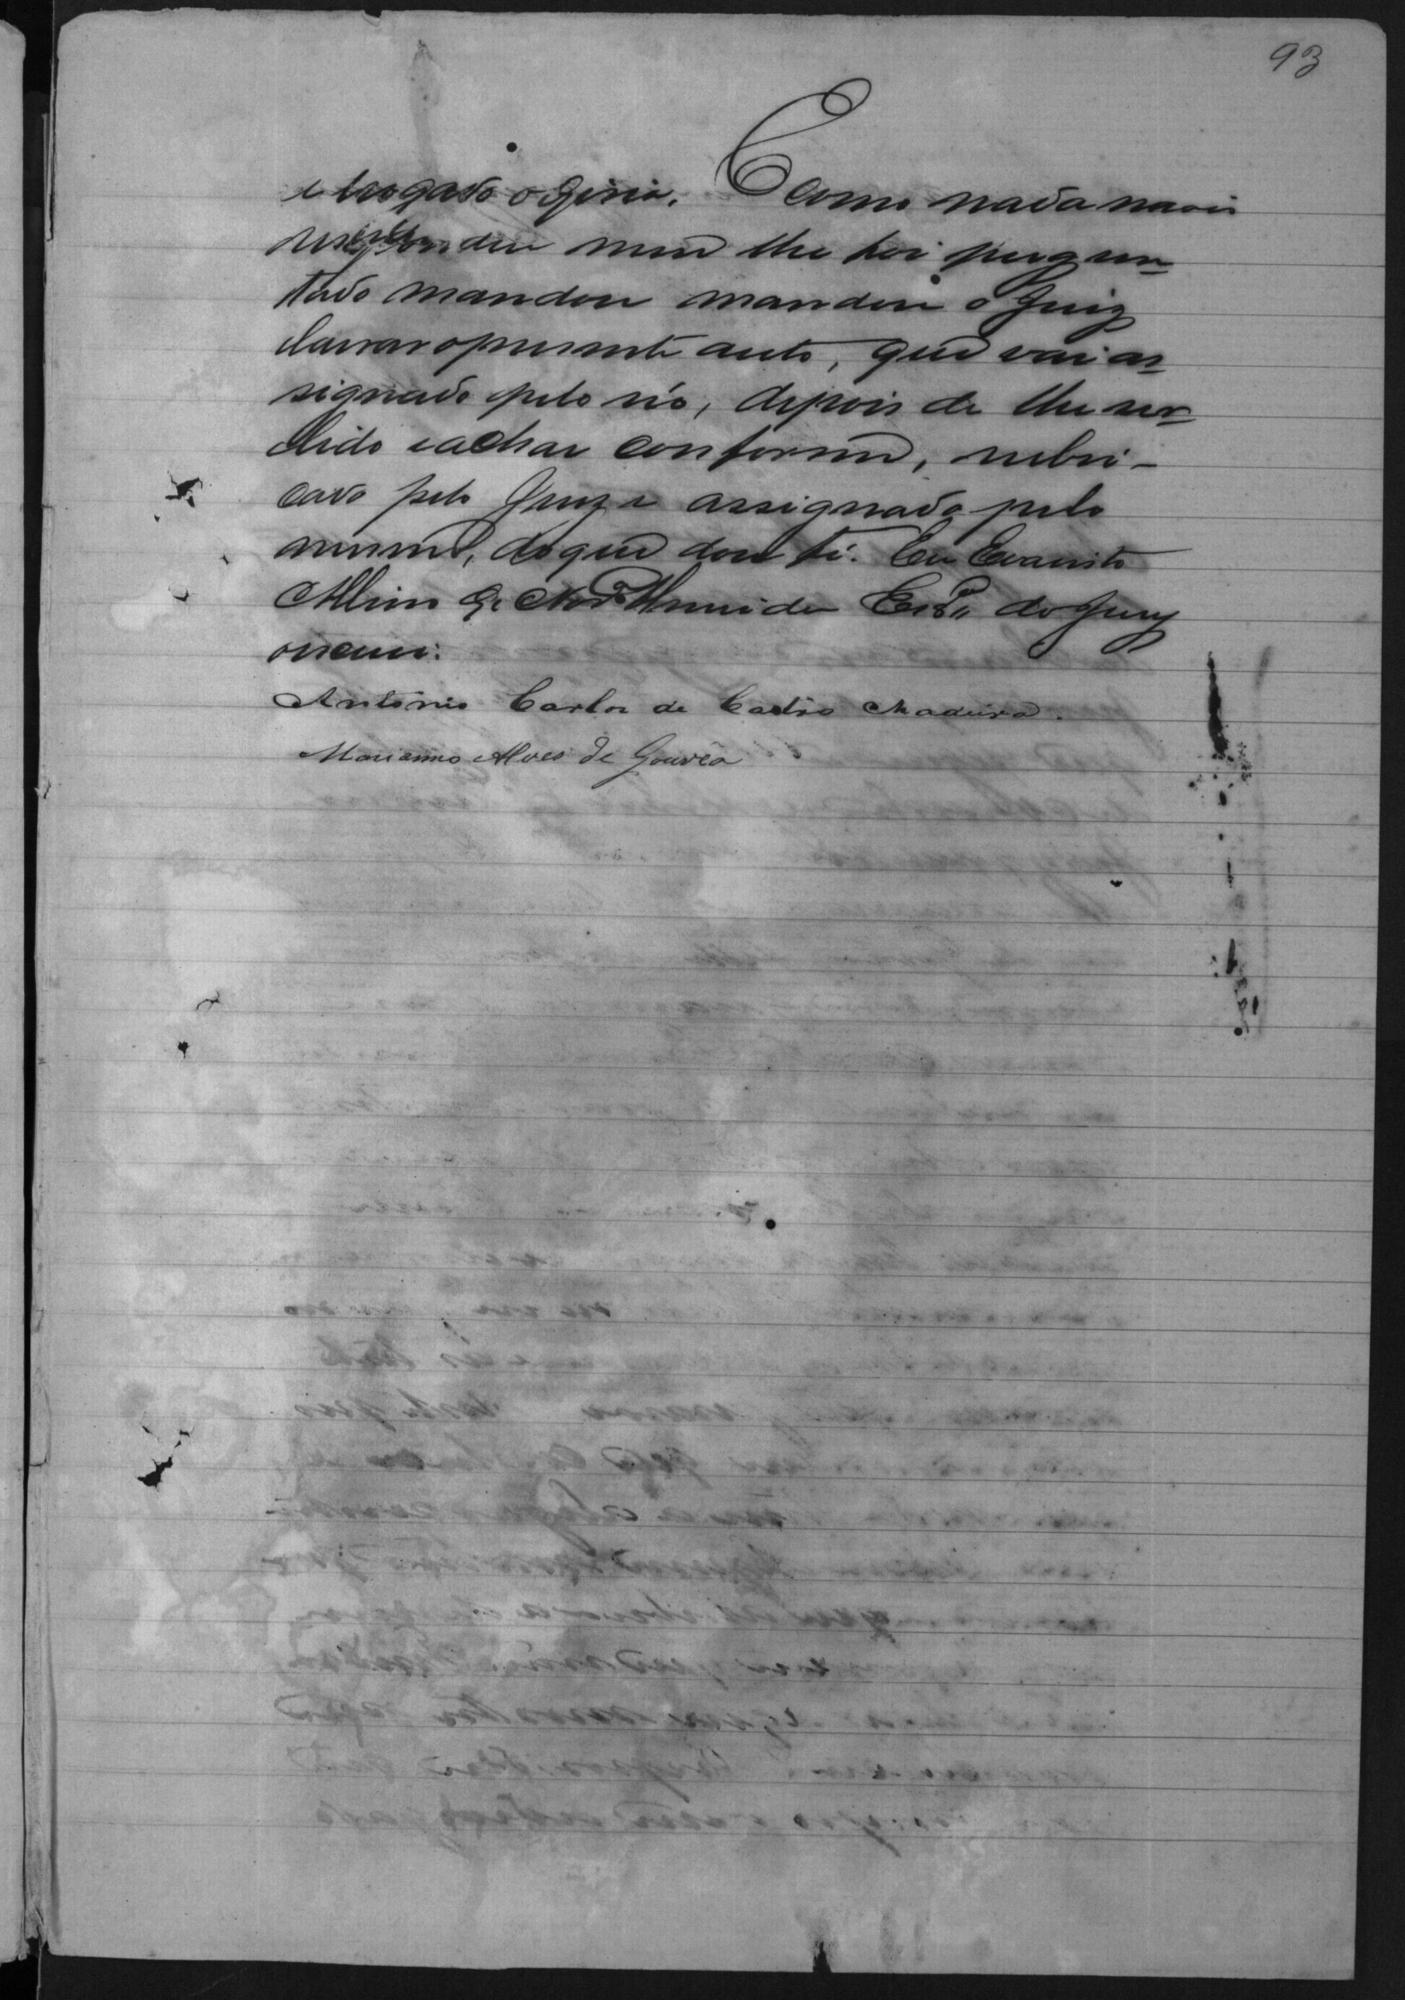 93
E como nada mais
respondeu nem lhe foi pergun-
tado mandou mandou o Juiz
lavrar o presente auto, que vai as-
signado pelo réo, depois de lhe ser
lido e achar conforme, rubri-
cado pelo Juiz e assignado pelo
mesmo, do que dou fé. Eu Evaristo
Albino Escr. do Jury
escrevi.
Antonio Carlos de Castro Madeira.
Marianno Alves de Gouvêa